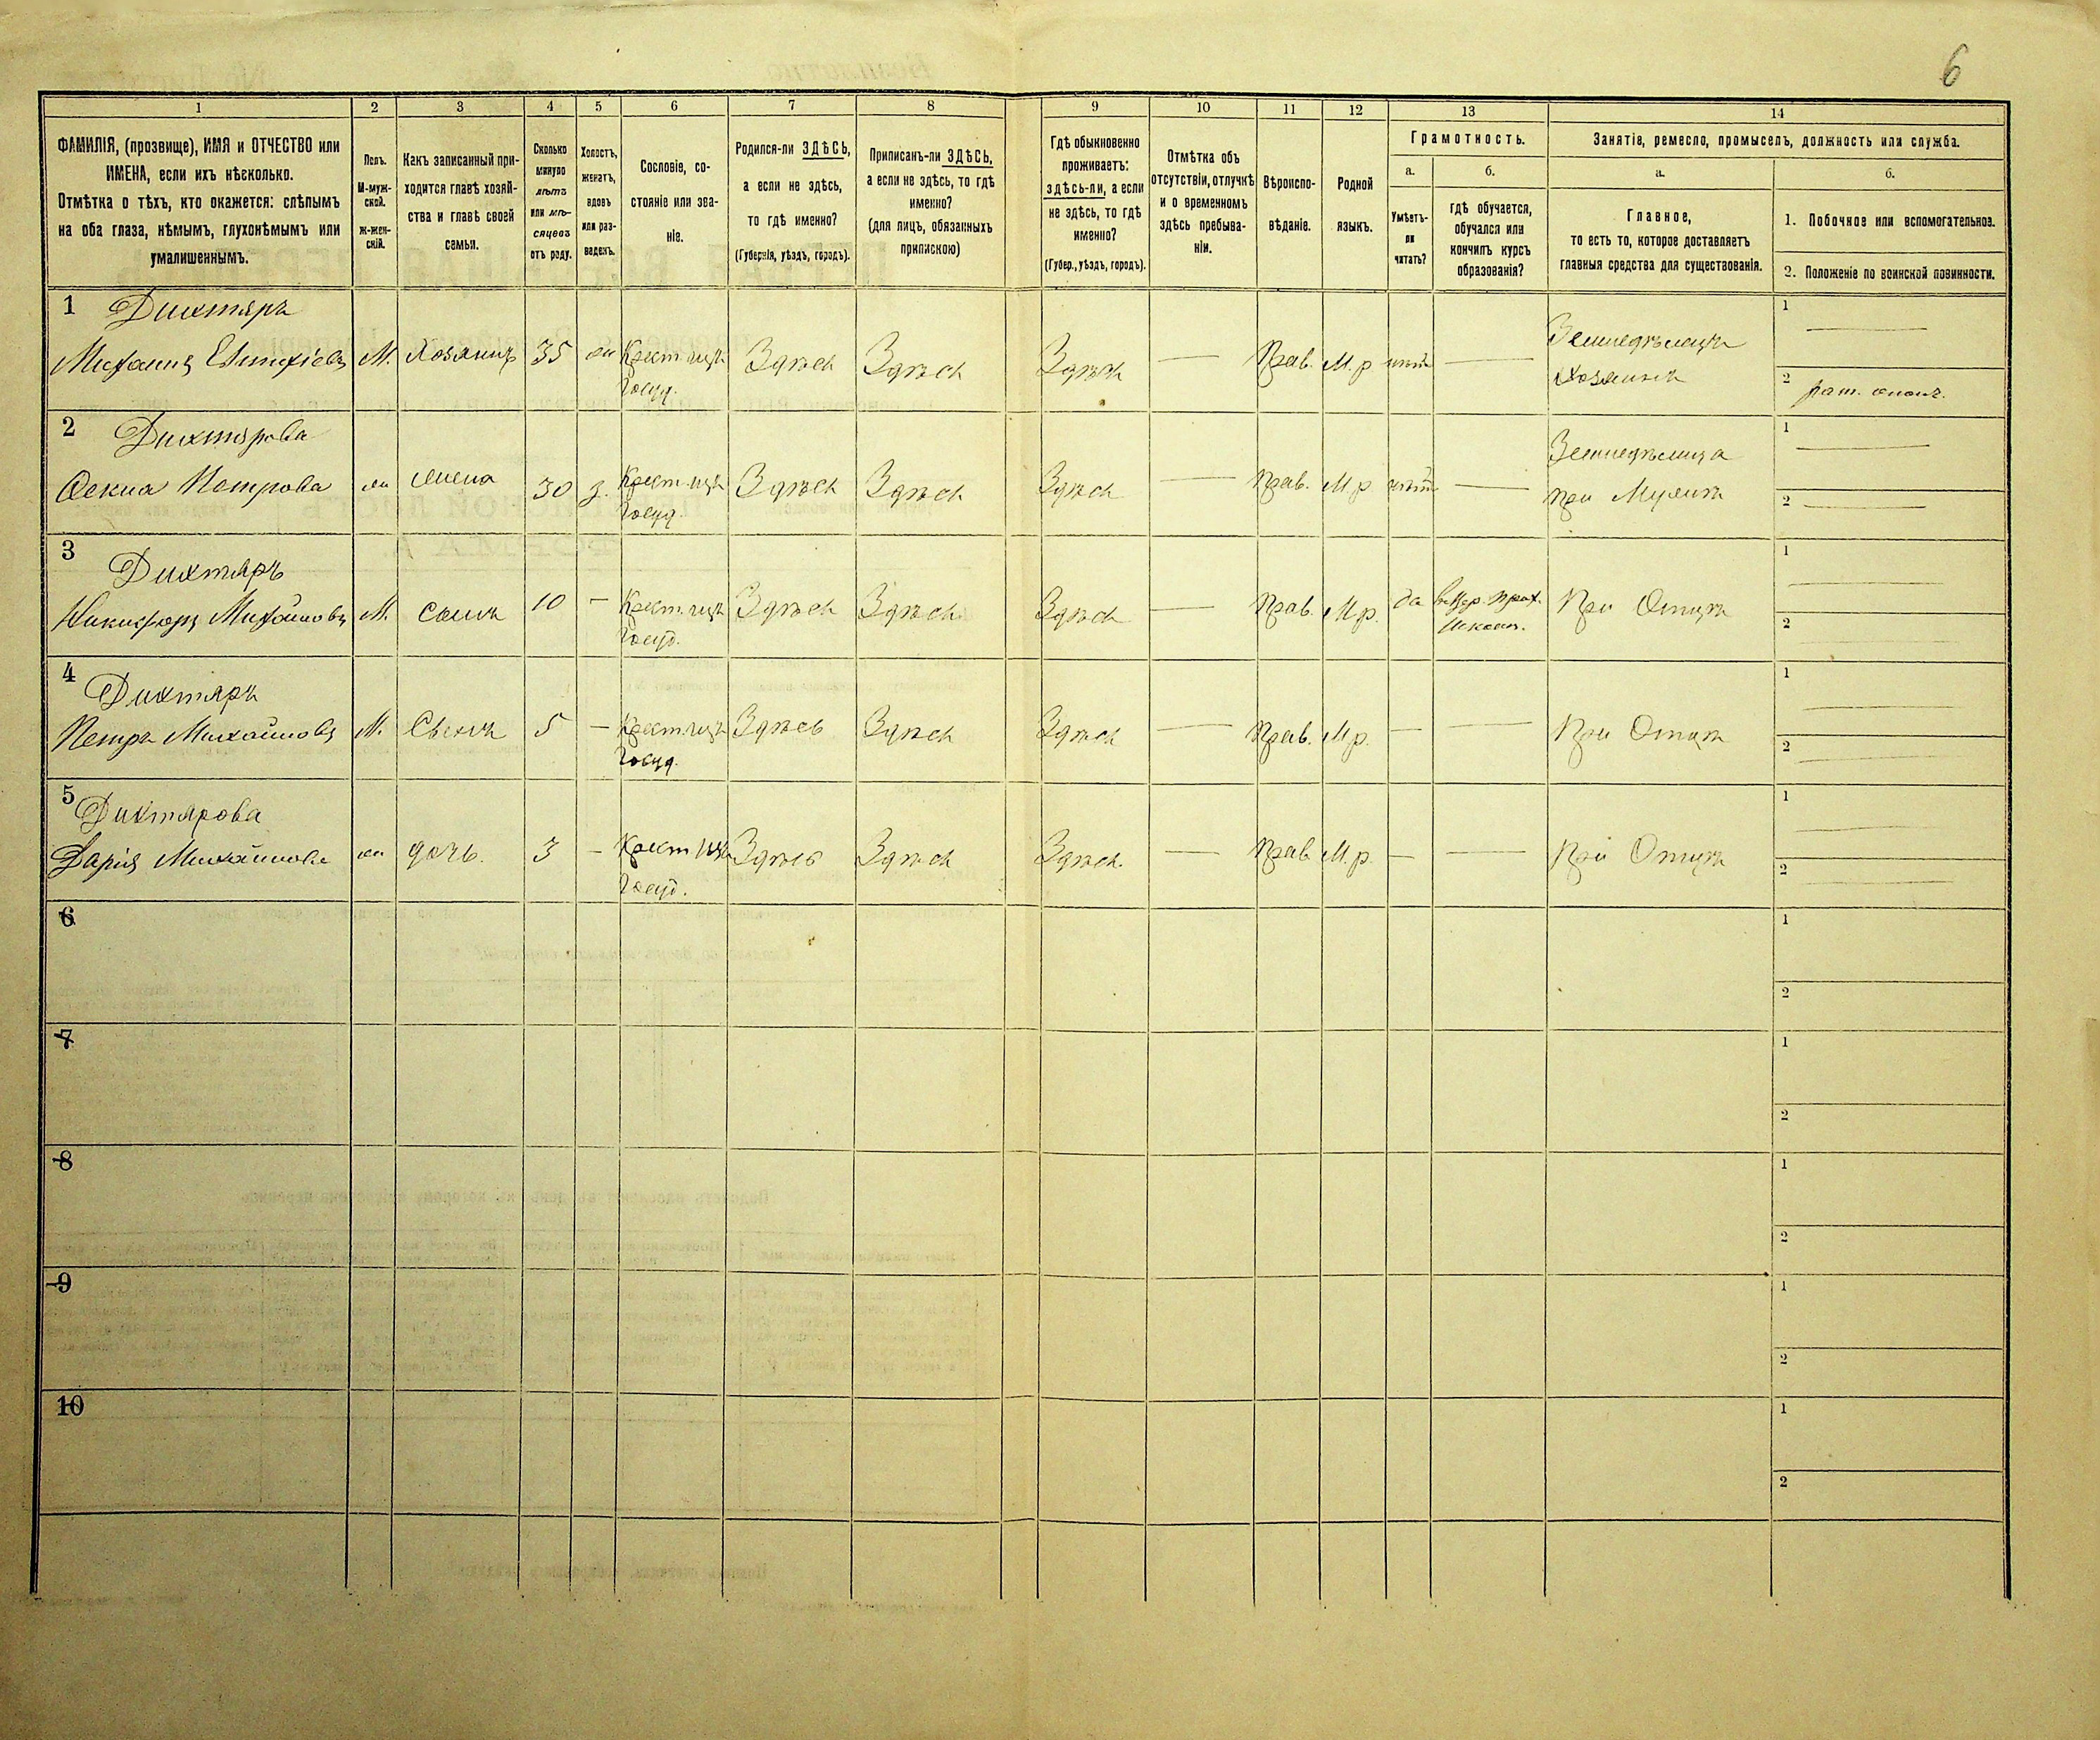 6
1 2 3 4 5 6 7 8 9 10 11 12 13 14
ФАМИЛІЯ, (прозвище), ИМЯ и ОТЧЕСТВО или
ИМЕНА, если ихъ нѣсколько.
Отмѣтка о тѣхъ, кто окажется: слѣпымъ
на оба глаза, нѣмымъ, глухонѣмымъ или
умалишеннымъ.
Полъ.
М-муж-
ской.
ж-жен-
скій.
Какъ записанный при-
ходится главѣ хозяй-
ства и главѣ своей
семьи.
Сколько
минуло
лѣтъ
или мѣ-
сяцевъ
отъ роду.
Холостъ,
женатъ,
вдовъ
или раз-
веденъ.
Сословіе, со-
стояніе или зва-
ніе.
Родился-ли ЗДѢСЬ,
а если не здѣсь,
то гдѣ именно?
(Губернія, уѣздъ, городъ).
Приписанъ-ли ЗДѢСЬ,
а если не здѣсь, то гдѣ
именно?
(для лицъ, обязанныхъ
припискою)
Гдѣ обыкновенно
проживаетъ:
здѣсь-ли, а если
не здѣсь, то гдѣ
именно?
(Губер., уѣздъ, городъ).
Отмѣтка объ
отсутствіи, отлучкѣ
и о временномъ
здѣсь пребыва-
ніи.
Вѣроиспо-
вѣданіе.
Родной
языкъ.
Грамотность.
а.
Умѣетъ-
ли
читать?
б.
гдѣ обучается,
обучался или
кончилъ курсъ
образованія?
Занятіе, ремесло, промыселъ, должность или служба.
а.
Главное,
то есть то, которое доставляетъ
главныя средства для существованія.
б.
1. Побочное или вспомогательное.
2. Положеніе по воинской повинности.
1 Дихтяръ 1
Михаилъ М. Хозяинъ 35 ж Крест. Здѣсь Здѣсь Здѣсь — Прав. М.р нѣтъ — Земледѣлецъ
Госуд. Хозяинъ 2 рат. ополч.
2 Дихтярова 1
Фекла Петрова ж жена 30 з. Крест. Здѣсь Здѣсь Здѣсь — Прав. М.р нѣтъ — Земледѣлица
Госуд. при Мужѣ 2
3 Дихтяръ 1
Никифоръ Михайловъ М. Сынъ 10 — Крест. Здѣсь Здѣсь Здѣсь — Прав. М.р. да При Отцѣ
Госуд. Школѣ. 2
4 Дихтяръ 1
Петръ Михайловъ М. Сынъ 5 — Крест. Здѣсь Здѣсь Здѣсь — Прав. М.р. — — При Отцѣ
Госуд. 2
5 Дихтярова 1
Дарія Михайлова ж дочь. 3 — Крест Здѣсь Здѣсь Здѣсь. — Прав М.р. — — При Отцѣ
Госуд. 2
6 1
2
7 1
2
8 1
2
9 1
2
10 1
2